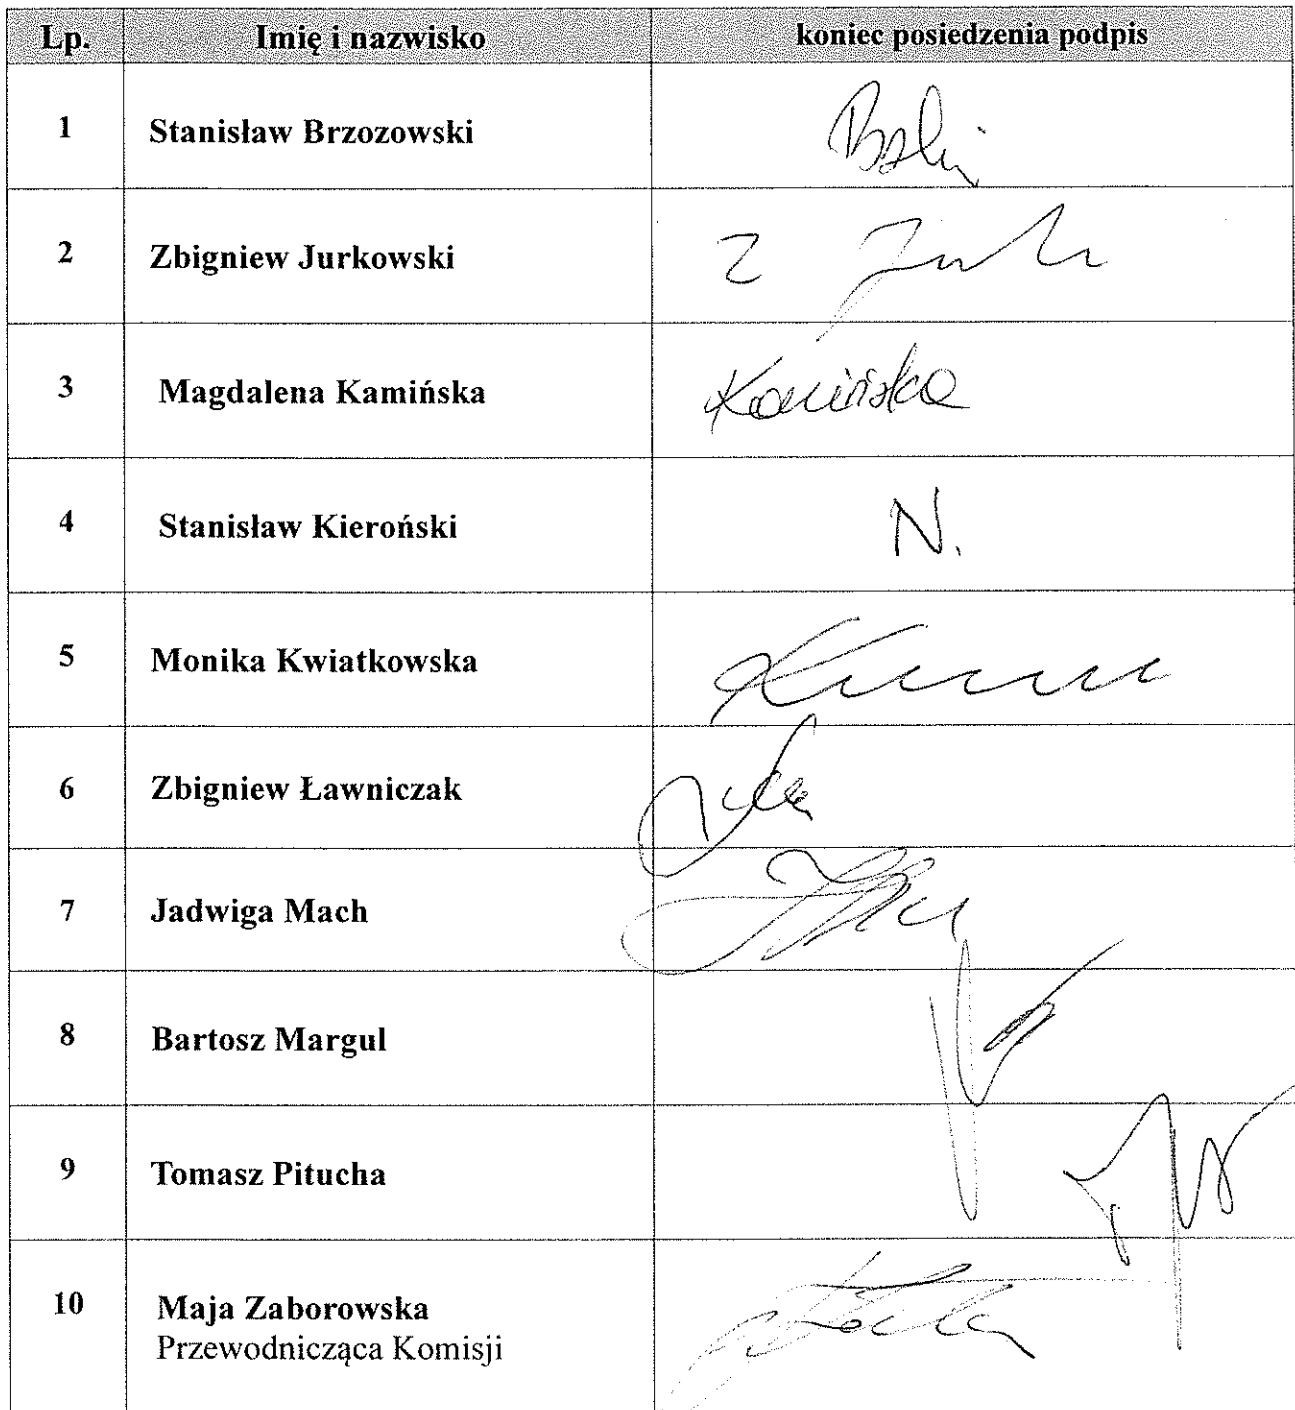 Lp. Imię i nazwisko koniec posiedzenia podpis
1 Stanisław Brzozowski
2 Zbigniew Jurkowski Z
3 Magdalena Kamińska Kamińska
4 Stanisław Kieroński N.
5 Monika Kwiatkowska
6 Zbigniew Ławniczak
7 Jadwiga Mach
8 Bartosz Margul
9 Tomasz Pitucha
10 Maja Zaborowska
Przewodnicząca Komisji